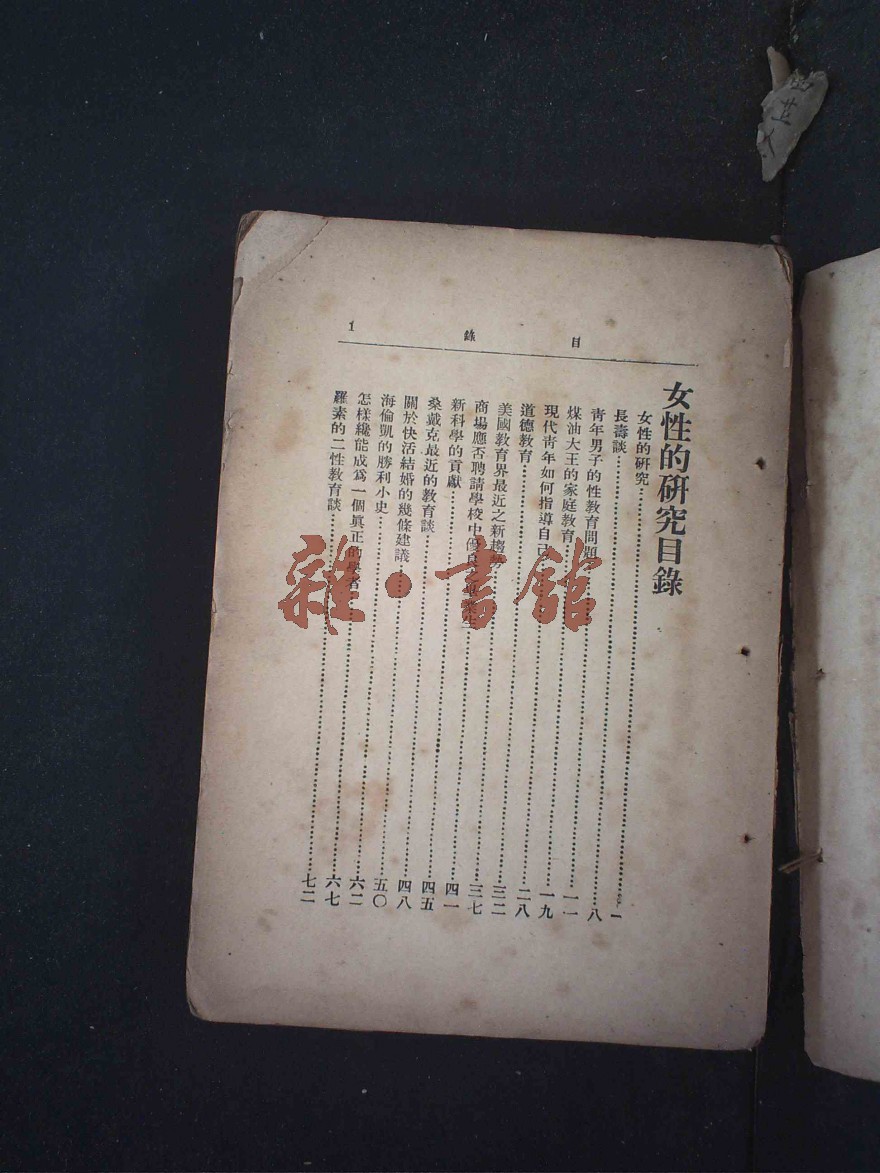 目錄
1
女性的研究目錄
女性的研究……一
長壽談……八
青年男子的性教育問題……一一
煤油大王的家庭教育……一九
現代青年如何指導自己……二八
道德教育……三二
美國教育界最近之新趨勢……三七
商場應否聘請學校中優良畢業生……四一
新科學的貢獻……四五
桑戴克最近的教育談……四八
關於快活結婚的幾條建議……五〇
海倫凱的勝利小史……六二
怎樣纔能成爲一個眞正的學者……六七
羅素的二性教育談……七二
雜·書館